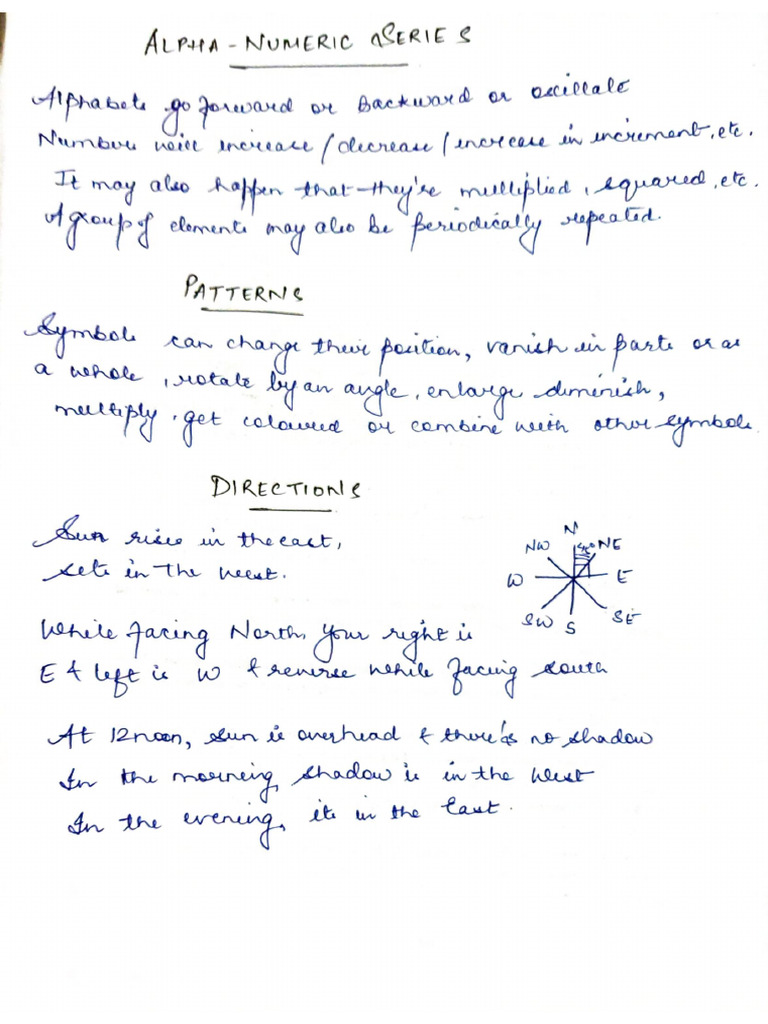 ALPHA-NUMERIC SERIES
Alphabets go forward or Backward or oscillate
Numbers will increase/decrease/increase in increment, etc.
It may also happen that they're multiplied, squared, etc.
A group of elements may also be periodically repeated.
PATTERNS
Symbols can change their position, vanish in parts or as
a whole, rotate by an angle, enlarge diminish,
multiply, get coloured or combine with other symbols.
DIRECTIONS
Sun rises in the east,
sets in the west.
N
NW 45° NE
W E
SW S SE
While facing North, your right is
E & left is W & reverse while facing south
At 12 noon, sun is overhead & there's no shadow
In the morning, shadow is in the West
In the evening, its in the East.